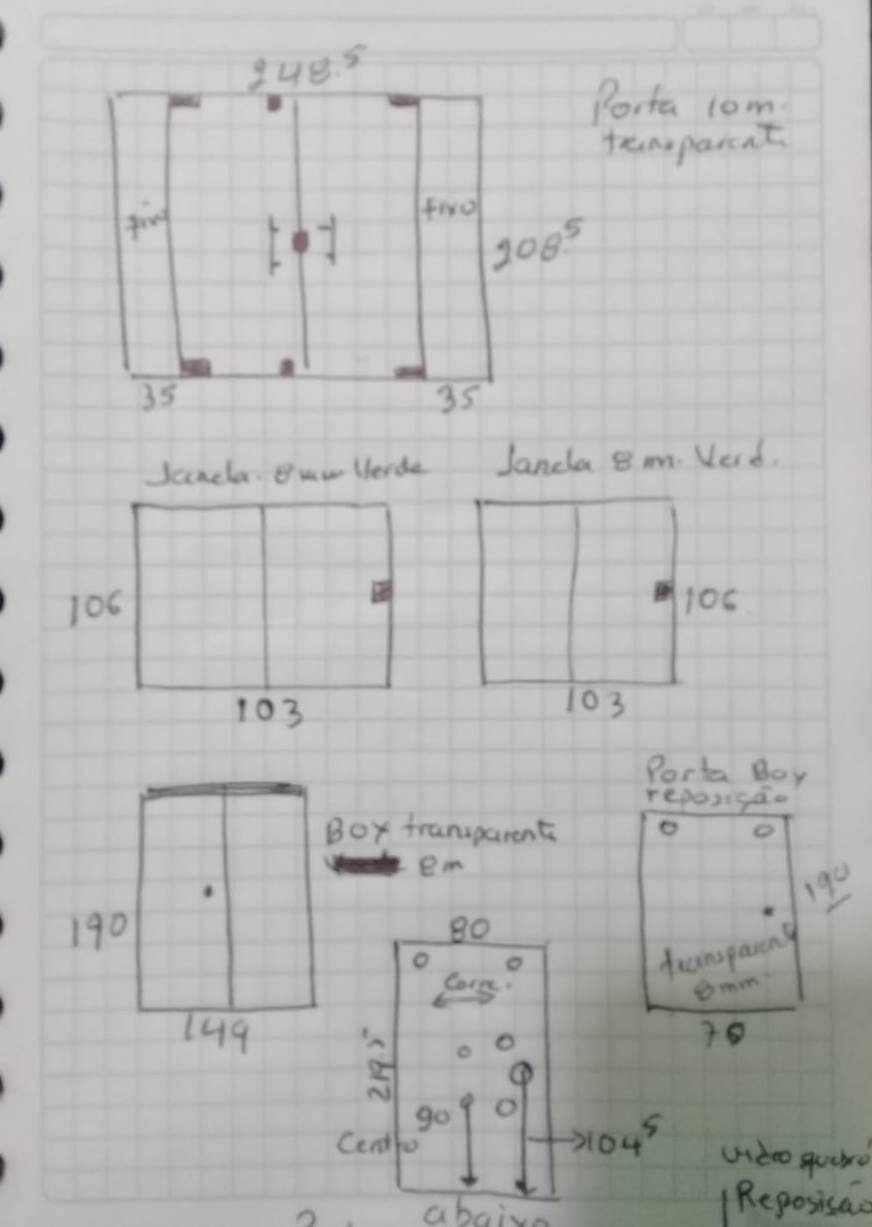 248.5
Porta 10m.
transparent
fixo
fixo
208.5
35
35
Janela 8mm Verde
Janela 8 m. Verd.
106
106
103
103
Porta Box
reposição
BOX transparente
8m
190
190
80
Corre.
transparent
8mm
149
70
219.5
90
Centro
104.5
vidro quebro
Reposisão
abaixo